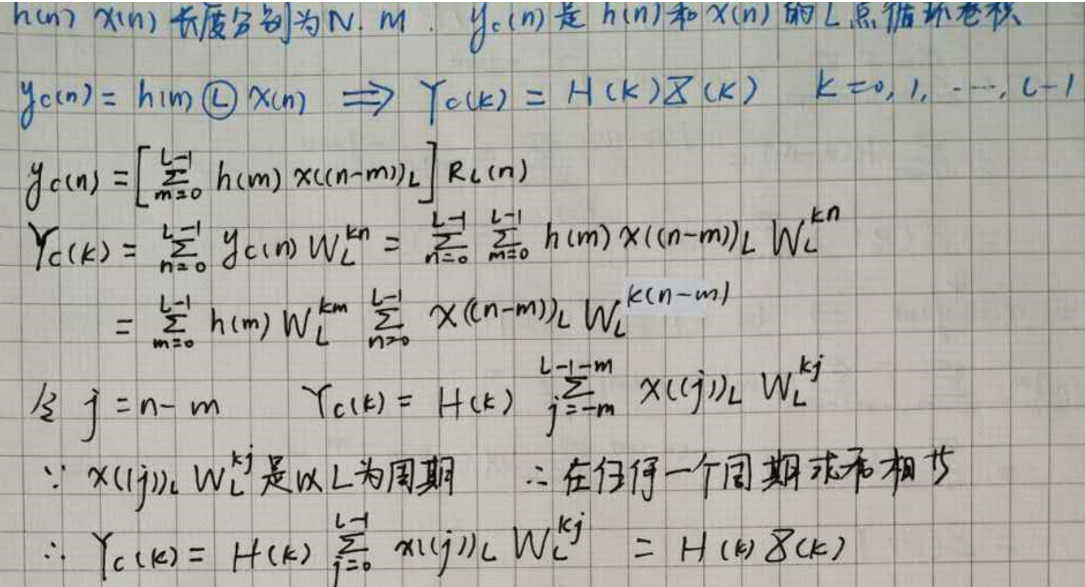 h(n) x(n) 长度分别为N. M. y_c(n) 是 h(n)和 x(n) 的 L 点循环卷积
y_c(n) = h(n) Ⓛ x(n) ⟹ Y_c(k) = H(k)X(k) k=0, 1, ···, L-1
y_c(n) = [∑_{m=0}^{L-1} h(m) x((n-m))_L] R_L(n)
Y_c(k) = ∑_{n=0}^{L-1} y_c(n) W_L^{kn} = ∑_{n=0}^{L-1} ∑_{m=0}^{L-1} h(m) x((n-m))_L W_L^{kn}
= ∑_{m=0}^{L-1} h(m) W_L^{km} ∑_{n=0}^{L-1} x((n-m))_L W_L^{k(n-m)}
令 j = n-m Y_c(k) = H(k) ∑_{j=-m}^{L-1-m} x((j))_L W_L^{kj}
∵ x((j))_L W_L^{kj} 是以L为周期 ∴ 在任何一个周期求和相等
∴ Y_c(k) = H(k) ∑_{j=0}^{L-1} x((j))_L W_L^{kj} = H(k) X(k)